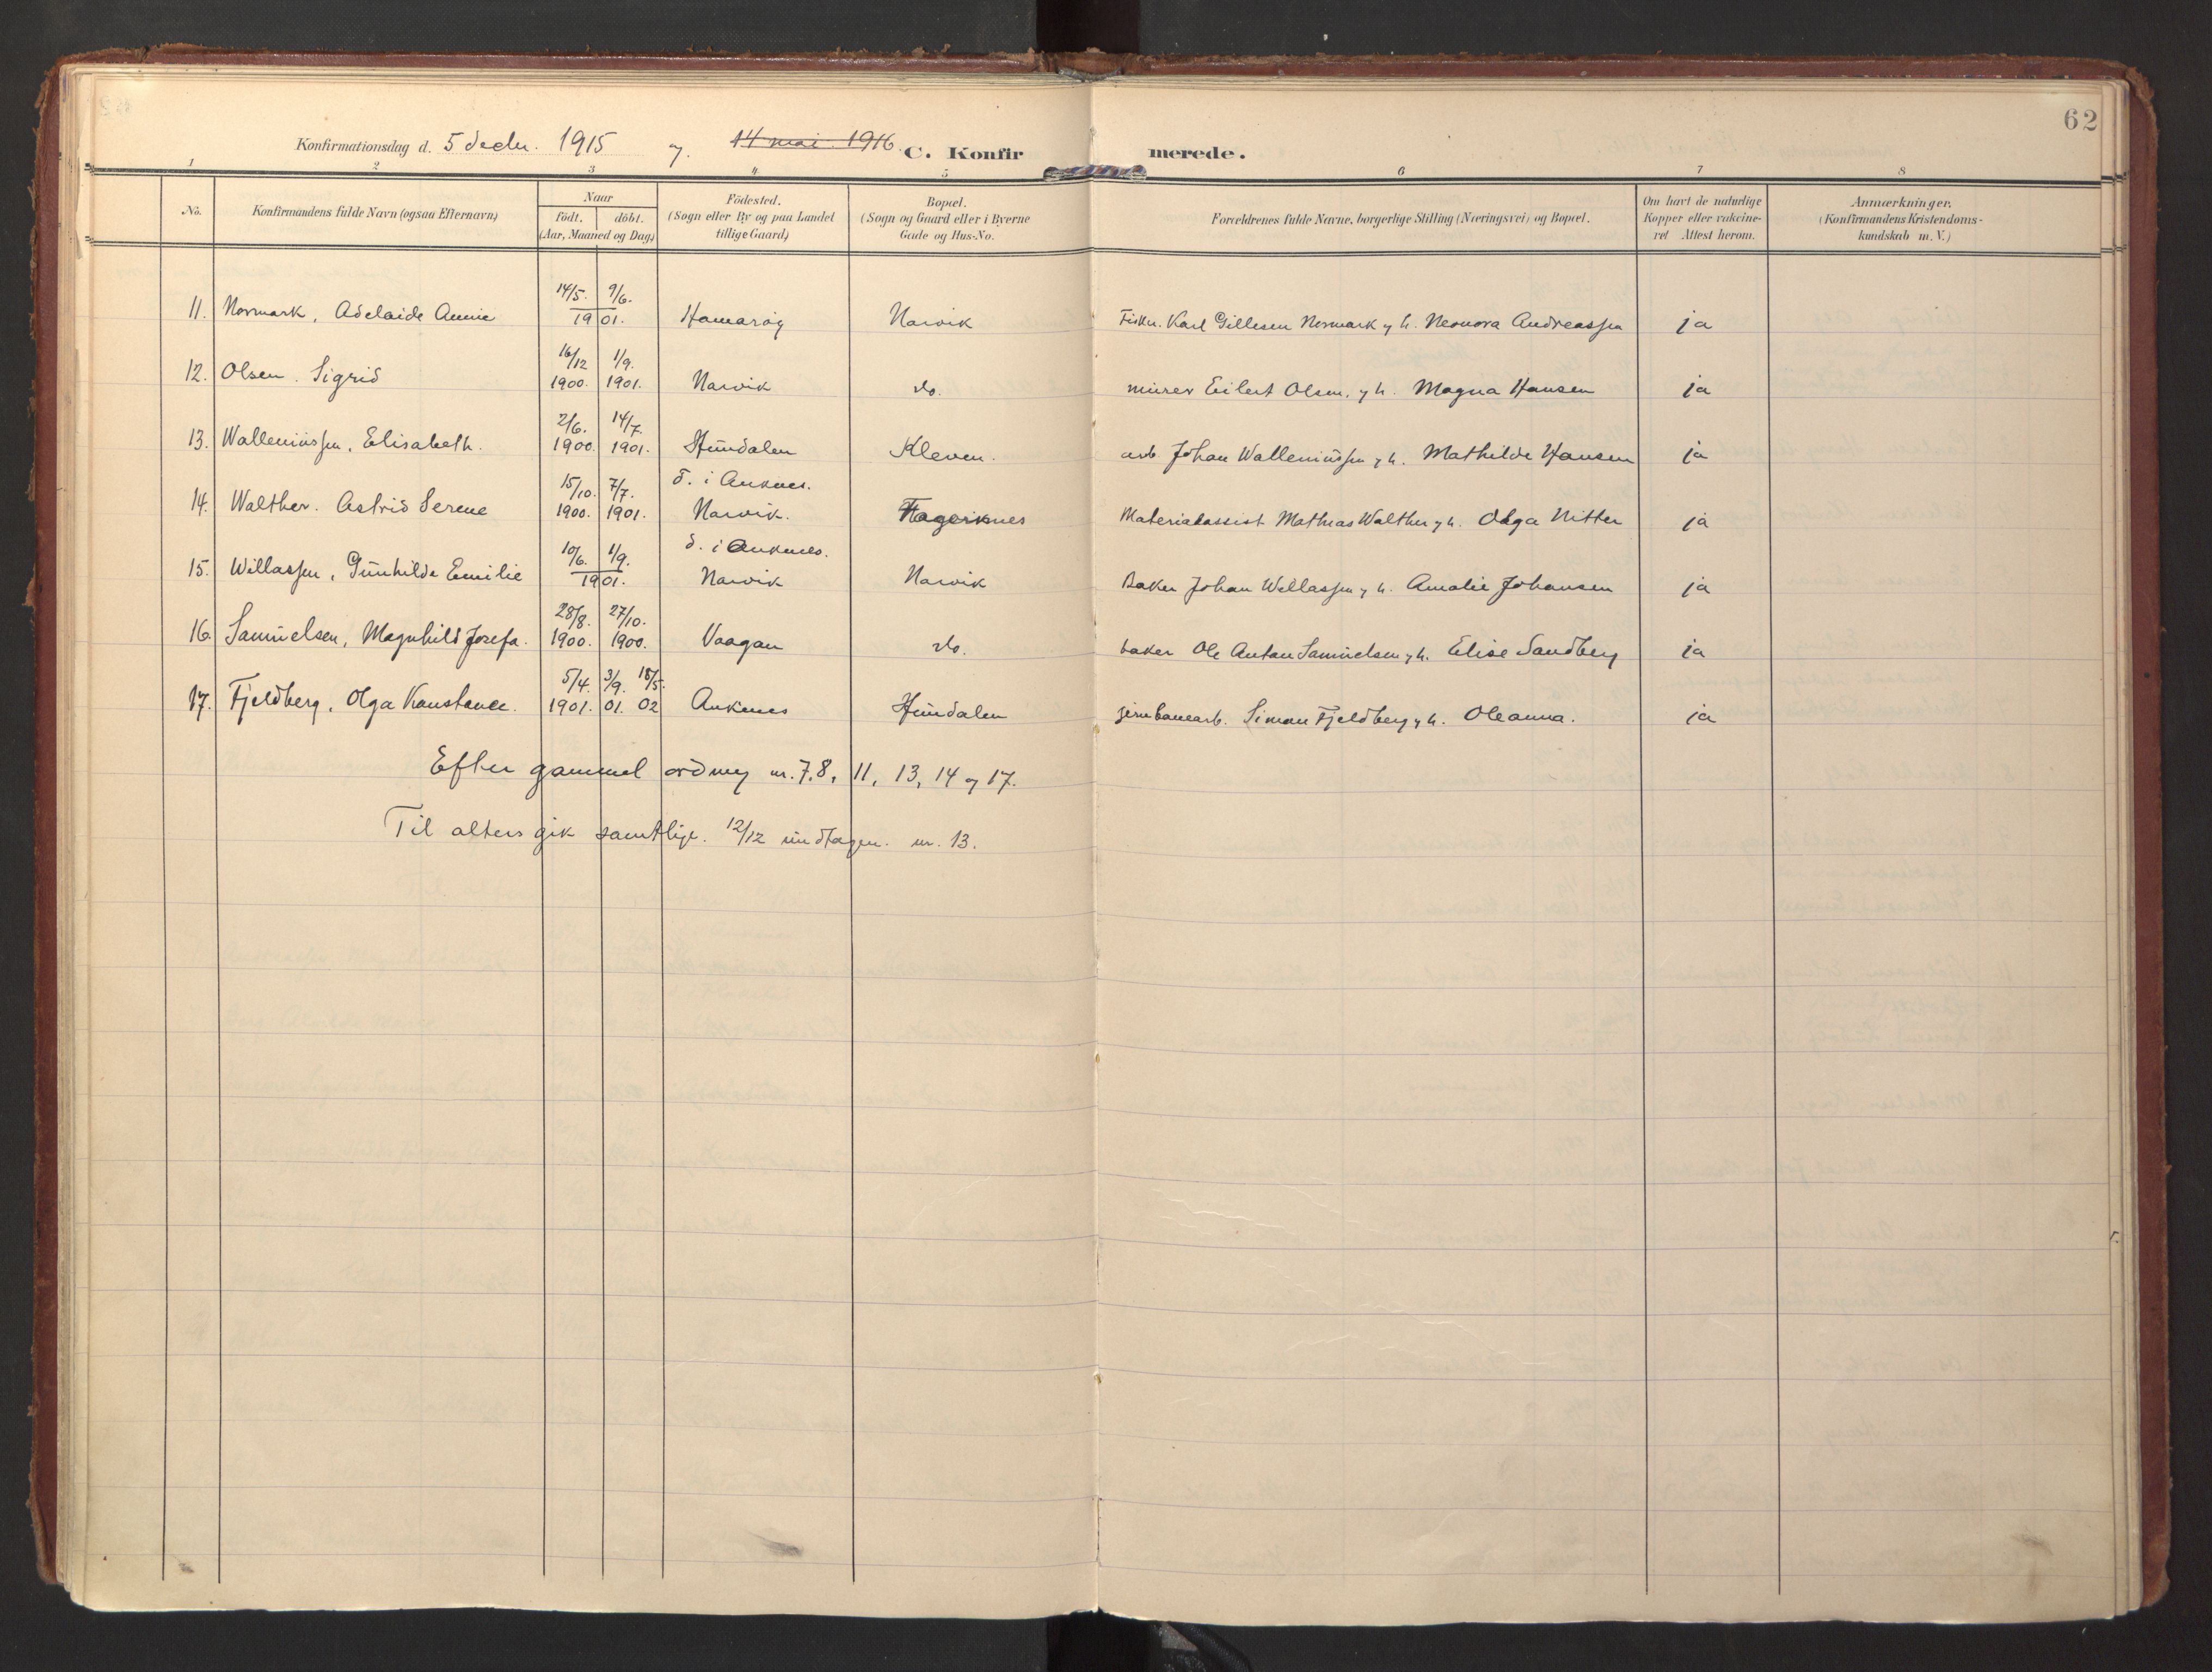 62
Konfirmationsdag d. 5 decbr. 1915 og 14 mai 1916. C. Konfirmerede.
1 2 3 4 5 6 7 8
No.
Konfirmandens fulde Navn (ogsaa Efternavn)
Naar
födt. döbt.
(Aar, Maaned og Dag)
Födested.
(Sogn eller By og paa Landet
tillige Gaard)
Bopæl.
(Sogn og Gaard eller i Byerne
Gade og Hus-No.
Forældrenes fulde Navne, borgerlige Stilling (Næringsvei) og Bopæl.
Om havt de naturlige
Kopper eller vakcine-
ret Attest herom.
Anmærkninger.
(Konfirmandens Kristendoms-
kundskab m. V.)
14/5. 9/6.
11. Normark, Adelaide Annie 1901. Hamarøy Narvik Fisker. Karl Gillesen Normark og h. Neonora Andreassen ja
16/12 1/9.
12. Olsen. Sigrid 1900. 1901. Narvik do. murer Eilert Olsen, og h. Magna Hansen ja
2/6. 14/7.
13. Walleniussen, Elisabeth. 1900. 1901. Hundalen Kleven. arb. Johan Walleniussen og h. Mathilde Hansen ja
15/10. 7/7. d. i Ankenes.
14. Walther. Astrid Serene 1900. 1901. Narvik. Fagernes Materialassist Mathias Walther og h. Olga Nitter ja
10/6. 1/9. d. i Ankenes.
15. Willassen, Gunhilde Emilie 1901. Narvik Narvik Baker Johan Willassen og h. Amalie Johansen ja
28/8. 27/10.
16. Samuelsen, Magnhild Josefa. 1900. 1900. Vaagan do. baker Ole Anton Samuelsen og h. Elise Sandberg ja
5/4. 3/9. 18/5.
17. Fjeldberg, Olga Konstance. 1901. 01. 02 Ankenes Hundalen jernbanearb. Simon Fjeldberg og h. Oleanna. ja
Efter gammel ordning nr. 7, 8, 11, 13, 14 og 17.
Til alters gik samtlige. 12/12 undtagen. nr. 13.